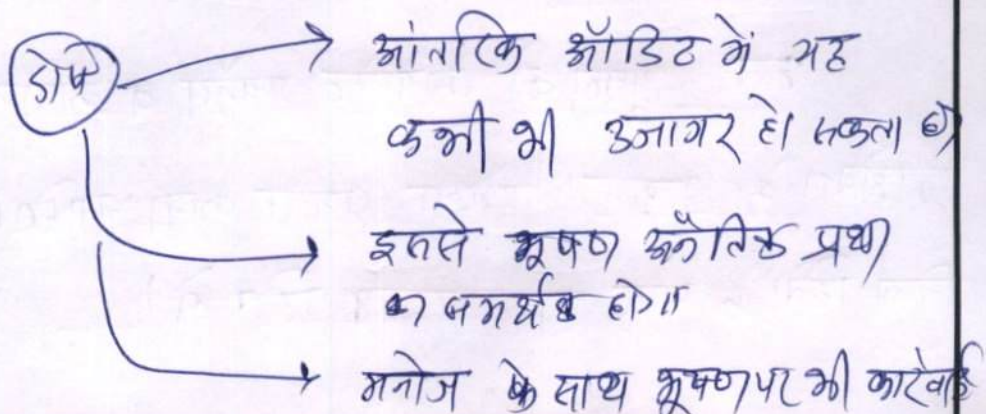 दोष
आंतरिक ऑडिट में यह
कभी भी उजागर हो सकता है
इससे भूषण अनैतिक प्रथा
का समर्थक होगा
मनोज के साथ भूषण पर भी कार्रवाई